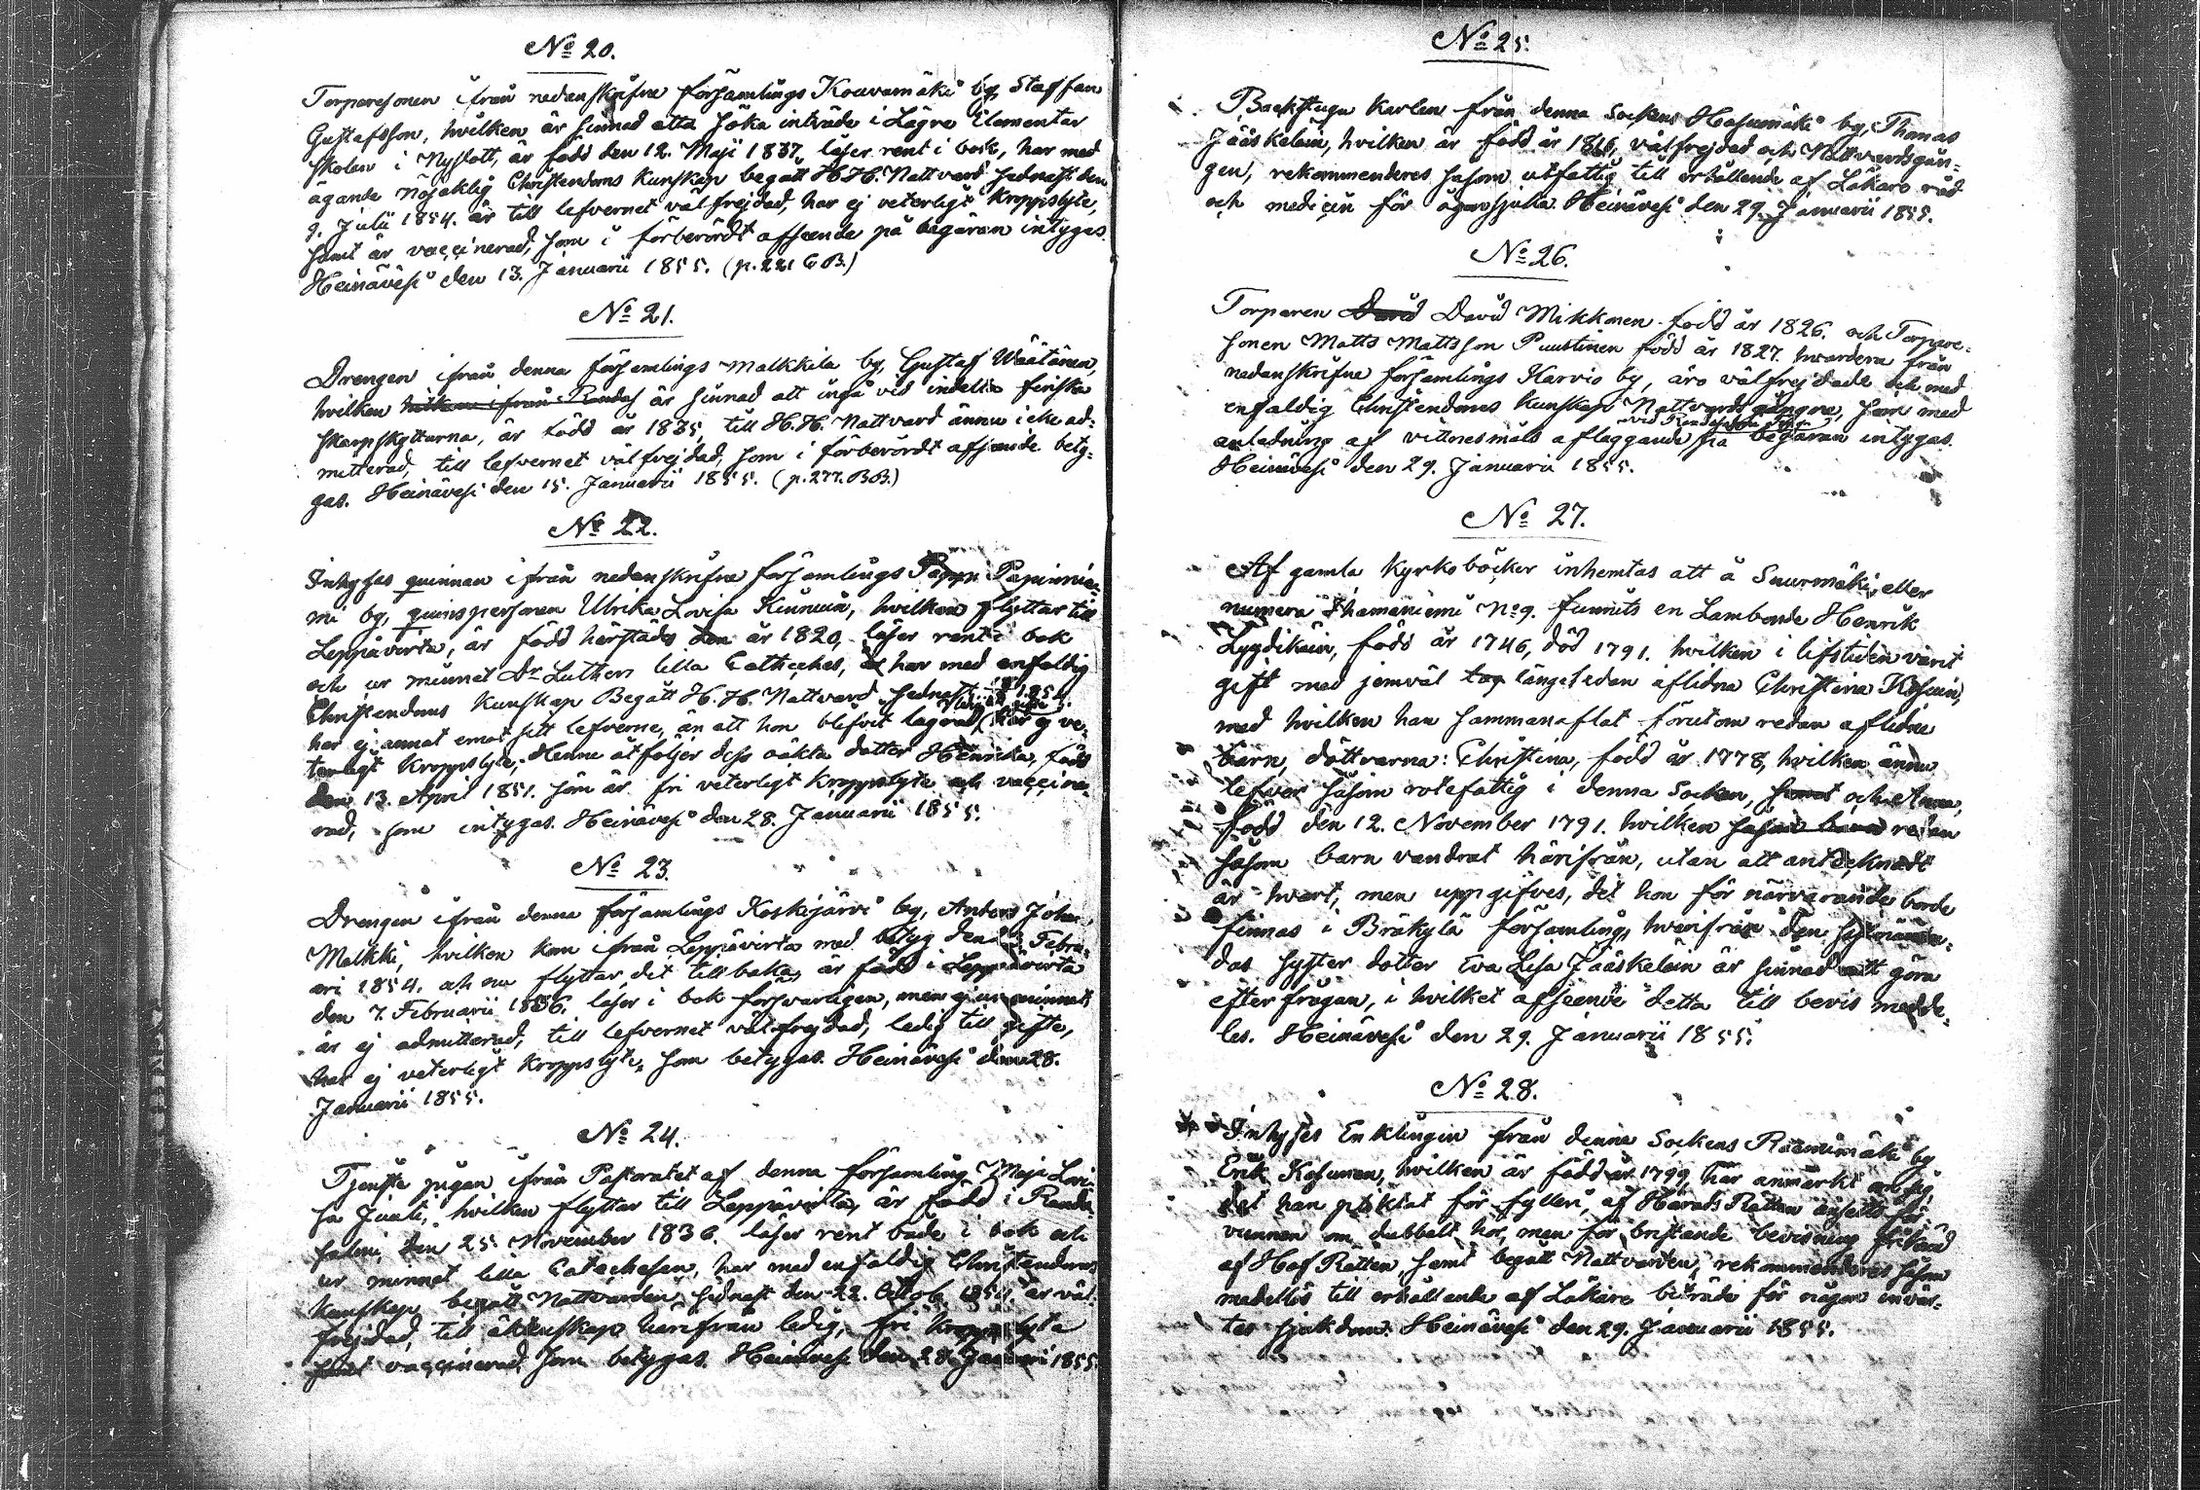 No 20.
Torparesonen ifrån nedanskrifne församlings Kouvamäki by, Staffan
Gustafsson, hvilken är sinnad atta söka inträde i Lägre Elementar
Skolan i Nyslott, är född den 12. Maji 1837, läser rent i bok, har med
ägande nöjaktig Christendoms Kunskap begått H.H. Nattvard sednast den
9. Julii 1854. är till lefvernet välfrejdad, har ej veterligt kroppslyte,
samt är vaccinerad, som i förberördt afseende på begäran intygas.
Heinävesi den 13. Januarii 1855. (p. 221 CB.)
No 21.
Drengen ifrån denna församlings Malkkila by, Gustaf Väätänen,
hvilken är sinnad att ingå vid indelta finska
Skarpskyttarna, är född år 1835, till H.H. Nattvard ännu icke ad-
mitterad, till lefvernet välfrejdad, som i förberördt afseende bety-
gas. Heinävesi den 15. Januarii 1855. (p. 277. BB.)
No 22.
Intygas quinnan ifrån nedanskrifne församlings Papinnie-
mi by, quinspersonen Ulrika Lovisa Kinnunen, hvilken flyttar till
Leppävirta, är född härstädes år 1820, läser rent i bok
och ur minnet Dr Luthers lilla Catheches, har med enfaldig
Christendoms kunskap Begått H.H. Nattvard sednast 1854
har ej annat emot sitt lefverne, än att hon blifvit lägrad, har ej ve-
terligt kroppslyte; Henne åtföljer dess oäkta dotter Henrika, född
den 13. April 1851. som är fri veterligt kroppslyte och vaccine-
rad, som intygas. Heinävesi den 28. Januarii 1855.
No 23.
Drengen ifrån denna församlings Koskijärvi by, Anders Johan
Malkki, hvilken kom ifrån Leppävirta med betyg den Febru-
ari 1854. och nu flyttar dit tillbaka, är född i Leppävirta
den 7. Februarii 1836, läser i bok försvarligen, men ej ur minnet
är ej admitterad, till lefvernet välfrejdad, ledig till gifte,
har ej veterligt kroppslyte, som betygas. Heinävesi den 28.
Januarii 1855.
No 24.
Tjenste pigan ifrån Pastoratet af denna församling Maja Lovi-
sa Juuti, hvilken flyttar till Leppävirta, är född i Randa-
salmi, den 25 November 1836. läser rent både i bok och
ur minnet lilla Catechesen, har med enfaldig Christendoms
kunskap begått Nattvarden sednast den 22. Octob. 1854, är väl-
frejdad, till äktenskap härifrån ledig, fri kroppslyte
samt vaccinerad, som betygas. Heinävesi den 28. Januari 1855.
No 25.
Backstugu Karlen från denna Sockens Hasumäki by, Thomas
Jääskeläin, hvilken är född år 1816, välfrejdad och Nattvardsgån-
gen, rekommenderes såsom utfattig till erhållende af Läkare råd
och medicin för ögonsjuka. Heinävesi den 29. Januarii 1855.
No 26.
Torparen David David Mikkonen född år 1826. och Torpare-
sonen Matts Mattsson Puustinen född år 1827. hvardera från
nedanskrifne församlings Karvio by, äro välfrejdade och med
enfaldig Christendoms Kunskap Nattvardsgångne, som med
anledning af vittnesmåls afläggande på begäran intygas.
Heinävesi den 29. Januarii 1855.
No 27.
Af gamla Kyrkoböcker inhemtas att å Suurmäki eller
numera Ihamaniemi No 9. funnits en Lambonde Henrik
Lyydikäin, född år 1746, död 1791. hvilken i lifstiden varit
gift med jemväl längesedan aflidna Christina Kosuin,
med hvilken han sammanaflat förutom redan aflidne
barn, döttrarna: Christina, född år 1778, hvilken ännu
lefver såsom rotefattig i denna Socken, och Anna,
född den 12. November 1791. hvilken redan
såsom barn vandrat härifrån, utan att antecknadt
är hvart, men uppgifves, det hon för närvarande borde
finnas i Bräkylä församling, hvarifrån den sistnämn-
das syster dotter Eva Lisa Jääskeläin är sinnad att göra
efterfrågan, i hvilket afseende detta till bevis medde-
les. Heinävesi den 29. Januarii 1855.
No 28.
Intyges Enklingen från denna Sockens Rummimäki by
Erik Kosunen, hvilken är född år 1799, har anmärkt om sig,
det han pliktat för fylleri, af Härads Rätten
vunnen om dubbelt hor, men för bristande bevisning frikänd
af Hof Rätten, samt begått Nattvarden, rekommenderes såsom
medellös till erhållande af Läkare biträde för någon invär-
tes sjukdom. Heinävesi den 29. Januarii 1855.